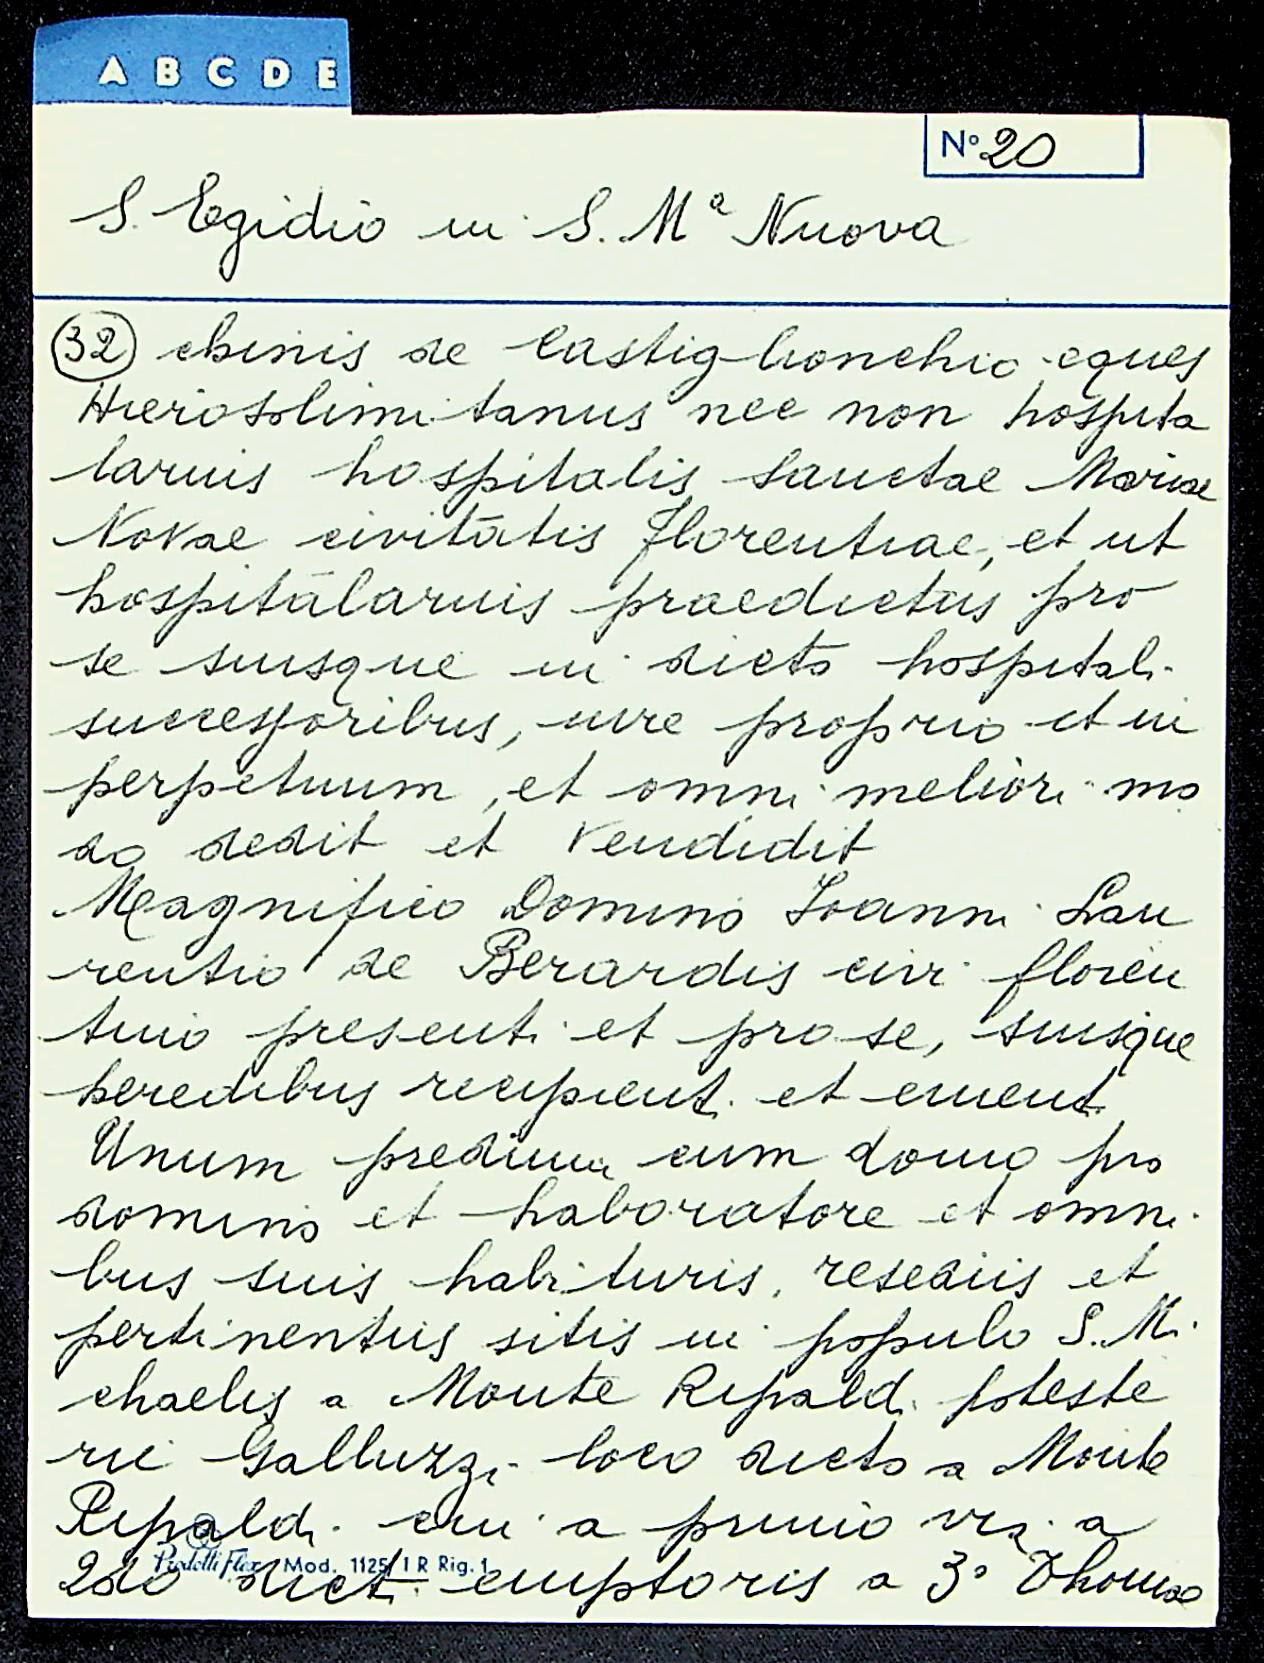 A B C D E
Nº 20
S. Egidio in S. Mª Nuova
(32) chinis de Castiglionchio eques
Hierosolimitanus nec non hospita
larius hospitalis Sanctae Mariae
Novae civitatis Florentiae, et ut
hospitalarius praedictus pro
se suisque in dicto hospitali
successoribus, iure proprio et in
perpetuum, et omni meliori mo
do dedit et vendidit
Magnifico Domino Ioanni Lau
rentio de Berardis civi floren
tino presenti et pro se, suisque
heredibus recipient. et ement.
Unum predium cum domo pro
domino et laboratore et omni
bus suis habituris, resediis et
pertinentiis sitis in populo S. Mi
chaelis a Monte Ripaldi poteste
rie Galluzzi loco dicto a Monte
Ripaldi cui a primo via a
2do dict. emptoris a 3º Thomae
Prodotti Flex Mod. 1125/1 R Rig. 1